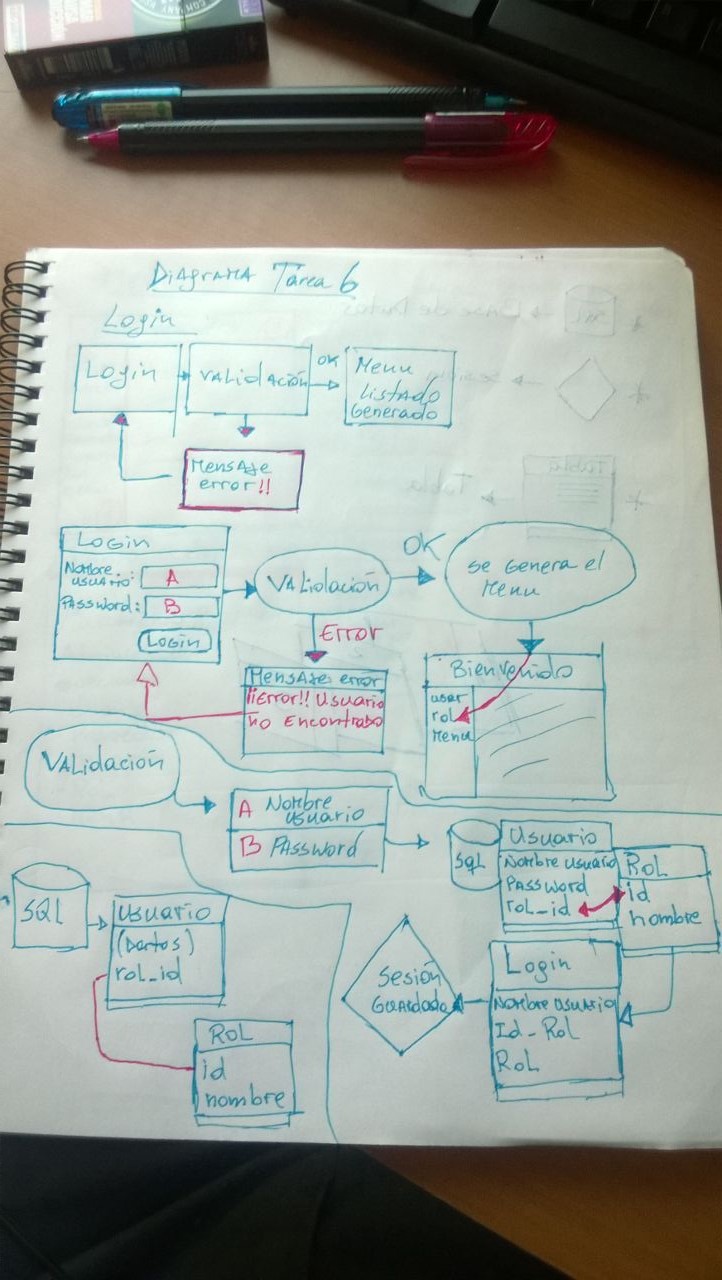 DIAGRAMA Tarea 6
Login
Login
VALidACIÓN
OK
Menu
LISTADO
Generado
MensAje
error!!
LOGIN
Nombre
USUARIO:
A
PASSword:
B
LOGIN
VALIDACIÓN
OK
Se Genera el
Menu
Error
MensAje error
¡¡Error!! Usuario
no Encontrado
Bienvenido
user
rol
Menu
VALidación
A Nombre
usuario
B PASSword
SQL
Usuario
Nombre usuario
Password
rol_id
RoL
id
nombre
SQL
Usuario
(Dartos)
rol_id
RoL
id
nombre
Sesión
Guardada
Login
Nombre usuario
Id_RoL
RoL